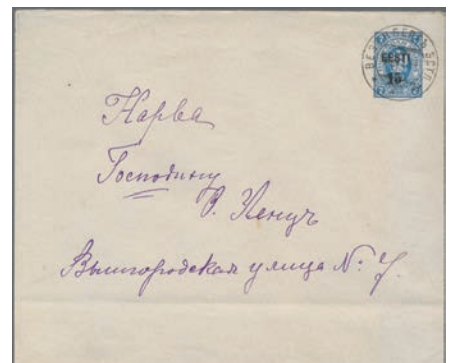 EESTI
10
Нарва
Господину
В. Кенцъ
Вышгородская улица №: 7.